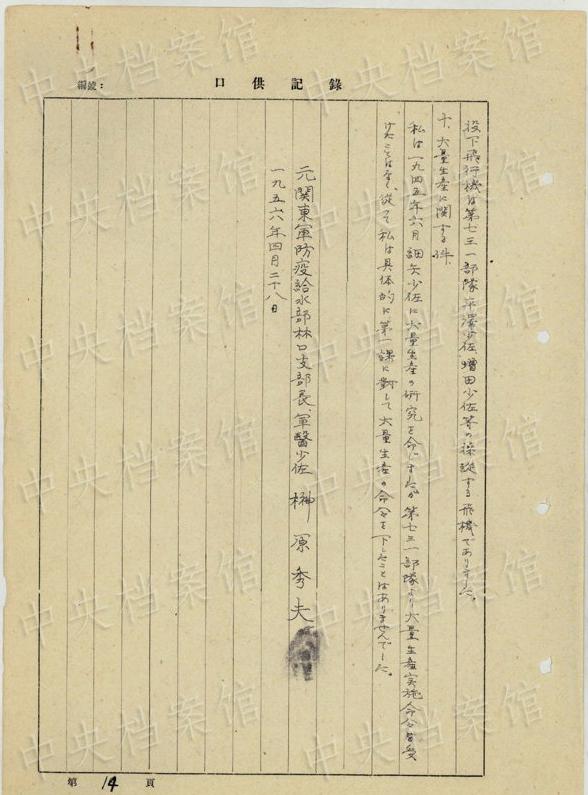 口供記錄
編號：
投下飛行機は第七三一部隊平澤少佐、増田少佐等の操縦する飛機でありました。
十、大量生産に関する件、
私は一九四五年六月 細矢少佐に大量生産の研究を命じましたが第七三一部隊より大量生産実施命令を受
けたことはなく、従って私は具体的に第一課に対して大量生産の命令を下したことはありませんでした。
元関東軍防疫給水部林口支部長、軍醫少佐 榊原秀夫
一九五六年四月二十八日
第 14 頁
中央档案馆